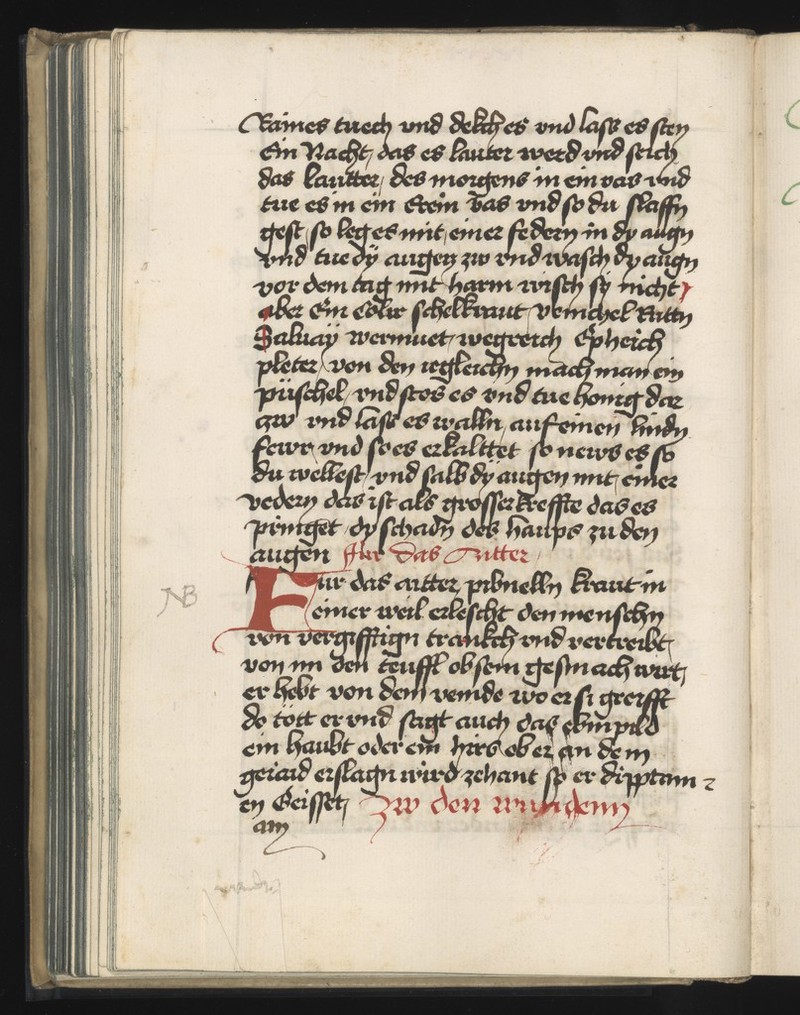 Raines tuech vnd dekch es vnd lass es sten
Ein Nacht das es lauter werd vnd seich
das lautter des morgens in ein vas vnd
tue es in ein Erein vas vnd so du slaffn
gest so leg es mit einer federn in dy augn
vnd tue dy augen zw vnd wasch dy augn
vor dem tag mit harm wisch sy nicht
aber Ein schelkraut venichel Rutn
Saluay wermuet wegreich Epheich
pleter von den iegleichn mach man ein
püschel vnd stos es vnd tue honig dar
zw vnd lass es walln auf einen lindn
fewr vnd so es erkalttet so news es so
du wellest vnd salb dy augen mit einer
vedern das ist als grosser kreffte das es
priniget dy schadn des haups zu den
augen Fur das aitter
Fur das aitter pibnelln kraut in
einer weil erlescht den menschn
von vergifftign trankch vnd vertreibt
von im den teuffl ob sein gesmach wirt
er hebt von dem veinde wo er si greifft
do tött er vnd sagt auch das
ein haubt oder ein hirs ob er an dem
geiaid erslagn wird zehant so er dipptam
en Geisset Zw den wundenn
am
NB